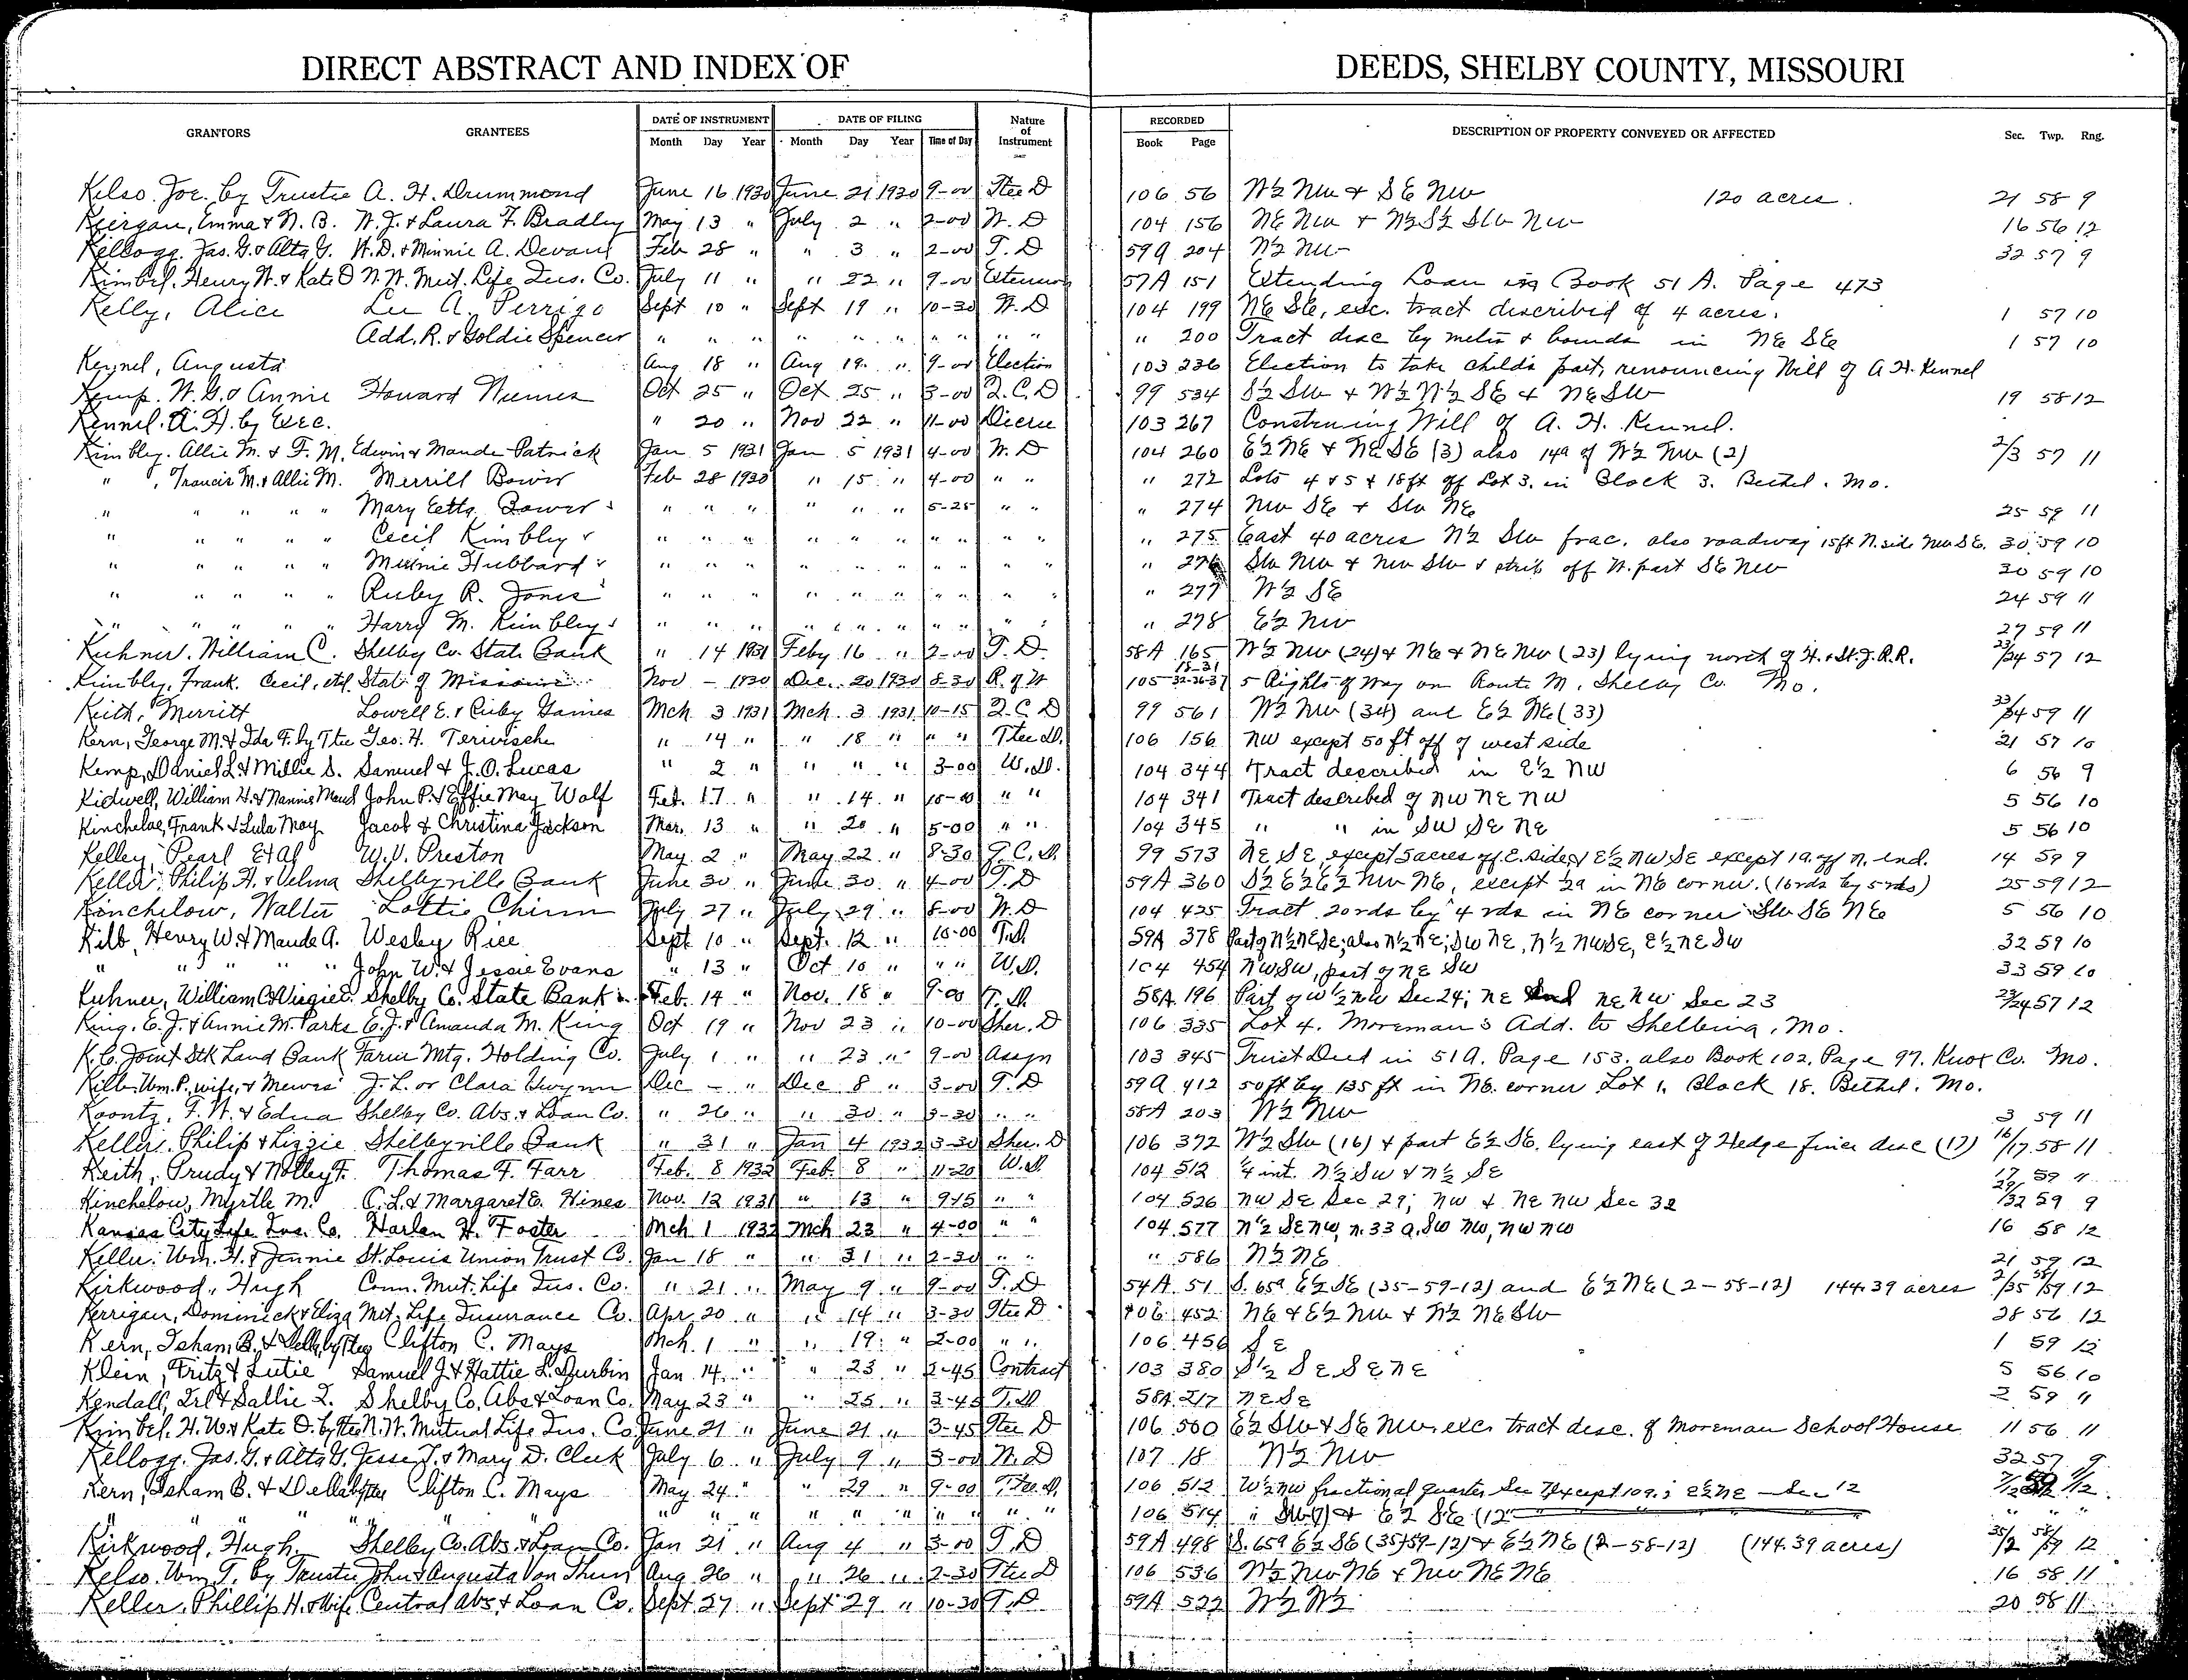 DIRECT ABSTRACT AND INDEX OF DEEDS, SHELBY COUNTY, MISSOURI
GRANTORS GRANTEES DATE OF INSTRUMENT DATE OF FILING Nature of Instrument RECORDED DESCRIPTION OF PROPERTY CONVEYED OR AFFECTED Sec. Twp. Rng.
Month Day Year Month Day Year Time of Day Book Page
Kelso Joe. by Trustee A. H. Drummond June 16 1930 June 21 1930 9-00 Stee D 106 56 W½ NW & SE NW 120 acres. 21 58 9
Kiergan, Emma & N. B. W. J. & Laura F. Bradley May 13 " July 2 " 2-00 W. D 104 156 NE NW & N½ S½ SW NW 16 56 12
Kellogg. Jas. G. & Alta G. W. D. & Minnie A. Devaul Feb 28 " " 3 " 2-00 T. D 59A 204 W½ NW 32 57 9
Kimbel. Henry W. & Kate O N. W. Mut. Life Ins. Co. July 11 " " 22 " 9-00 Extension 57A 151 Extending Loan in Book 51 A. Page 473
Kelly, Alice Lee A. Perrigo Sept 10 " Sept 19 " 10-30 W. D 104 199 NE SE, exc. tract described of 4 acres. 1 57 10
Add. R. & Goldie Spencer " " " " " " " " " " 200 Tract desc by metes & bounds in NE SE 1 57 10
Kennel, Augusta Aug 18 " Aug 19 " 9-00 Election 103 236 Election to take childs part, renouncing Will of A. H. Kennel
Kemp. W. G. & Annie Howard Niemes Oct 25 " Oct 25 " 3-00 Q. C. D 99 534 S½ SW & W½ N½ SE & NE SW 19 58 12
Kennel. A. H. by Exec. " 20 " Nov 22 " 11-00 Decree 103 267 Construing Will of A. H. Kennel.
Kimbley. Allie M. & F. M. Edwin & Maude Patrick Jan 5 1931 Jan 5 1931 4-00 W. D 104 260 E½ NE & NE SE (3) also 14a of W½ NW (2) 2/3 57 11
" , Francis M. & Allie M. Merrill Bower Feb 28 1930 " 15 " 4-00 " " " 272 Lots 4 & 5 & 18 ft off Lot 3. in Block 3. Bethel. Mo.
" " " " " Mary Etta Bower " " " " " " 5-25 " " " 274 NW SE & SW NE 25 59 11
" " " " " Cecil Kimbley " " " " " " " " " " " 275 East 40 acres N½ SW frac. also roadway 15ft N. side NW SE. 30 59 10
" " " " " Minnie Hubbard " " " " " " " " " " " 276 SW NW & NW SW & strip off W. part SE NW 30 59 10
" " " " " Ruby R. Jones " " " " " " " " " " " 277 W½ SE 24 59 11
" " " " " Harry M. Kimbley " " " " " " " " " " " 278 E½ NW 27 59 11
Kuhner. William C. Shelby Co. State Bank " 14 1931 Feby 16 " 2-00 T. D. 58A 165 W½ NW (24) & NE & NE NW (23) lying north of H. & St. J. R. R. 23/24 57 12
Kimbley, Frank. Cecil, etal State of Missouri Nov - 1930 Dec. 20 1930 8-30 R. of W 105 18-31 32-36-37 5 Rights of Way on Route M, Shelby Co. Mo.
Keith, Merritt Lowell E. & Ruby Gaines Mch 3 1931 Mch. 3 1931 10-15 Q. C. D 99 561 W½ NW (34) and E½ NE (33) 33/34 59 11
Kern, George M. & Ida F. by Ttee Geo. H. Terwische " 14 " " 18 " " " Ttee D. 106 156 NW except 50 ft off of west side 21 57 10
Kemp, Daniel L. & Millie S. Samuel & J. O. Lucas " 2 " " " " 3-00 W. D. 104 344 Tract described in E½ NW 6 56 9
Kidwell, William H. & Nannie Maud John P. & Effie May Wolf Feb. 17 " " 14 " 10-00 " " 104 341 Tract described of NW NE NW 5 56 10
Kincheloe, Frank & Lula May Jacob & Christina Jackson Mar. 13 " " 20 " 5-00 " " 104 345 " " in SW SE NE 5 56 10
Kelley, Pearl Et Al W. V. Preston May 2 " May 22 " 8-30 Q. C. D. 99 573 NE SE except 5 acres off E. side & E½ NW SE except 1a. off N. end. 14 59 9
Keller. Philip H. & Velma Shelbyville Bank June 30 " June 30 " 4-00 T. D 59A 360 S½ E½ E½ NW NE, except ½a in NE corner. (16 rds by 5 rds) 25 59 12
Kinchelow, Walter Lottie Chinn July 27 " July 29 " 8-00 W. D 104 425 Tract 20 rds by 4 rds in NE corner SW SE NE 5 56 10
Kilb, Henry W. & Maude A. Wesley Rice Sept 10 " Sept. 12 " 10-00 T. D. 59A 378 Part of N½ NE SE; also N½ NE; SW NE, N½ NW SE, E½ NE SW 32 59 10
" " " " " John W. & Jessie Evans " 13 " Oct 10 " " " W. D. 104 454 NW SW, part of NE SW 33 59 10
Kuhner, William C & Virgie E. Shelby Co. State Bank Feb. 14 " Nov. 18 " 9-00 T. D. 58A 196 Part of W½ NW Sec 24; NE and NE NW Sec 23 23/24 57 12
King. E. J. & Annie M. Parks E. J. & Amanda M. King Oct 19 " Nov 23 " 10-00 Sher. D 106 335 Lot 4. Moreman's Add. to Shelbina, Mo.
K. C. Joint Stk Land Bank Farm Mtg. Holding Co. July 1 " " 23 " 9-00 Assgn 103 345 Trust Deed in 51A. Page 153. also Book 102, Page 97. Knox Co. Mo.
Kilb. Wm. P. wife, & Mewes J. L. or Clara Gwynn Dec - " Dec 8 " 3-00 T. D 59A 412 50 ft by 135 ft in NE. corner Lot 1, Block 18. Bethel. Mo.
Koontz, F. W. & Edna Shelby Co. Abs. & Loan Co. " 26 " " 30 " 3-30 " " 58A 203 W½ NW 3 59 11
Keller. Philip & Lizzie Shelbyville Bank " 31 " Jan 4 1932 3-30 Sher. D 106 372 W½ SW (16) & part E½ SE. lying east of Hedge fence desc (17) 16/17 58 11
Keith, Prudy & Nolley F. Thomas F. Farr Feb. 8 1932 Feb. 8 " 11-20 W. D. 104 512 ¼ int. N½ SW & N½ SE 17 59 11
Kinchelow, Myrtle M. C. L. & Margaret E. Hines Nov. 12 1931 " 13 " 9-15 " " 104 526 NW SE Sec 29; NW & NE NW Sec 32 29/32 59 9
Kansas City Life Ins. Co. Harlan H. Foster Mch 1 1932 Mch 23 " 4-00 " " 104 577 N½ SE NW, N. 33 a. SW NW, NW NW 16 58 12
Keller. Wm. H. & Jennie St. Louis Union Trust Co. Jan 18 " " 31 " 2-30 " " " 586 N½ NE 21 59 12
Kirkwood, Hugh Conn. Mut. Life Ins. Co. " 21 " May 9 " 9-00 T. D 54A 51 S. 65a E½ SE (35-59-12) and E½ NE (2-58-12) 144.39 acres 2/35 58/59 12
Kerrigan, Dominick & Eliza Mut. Life Insurance Co. Apr 20 " " 14 " 3-30 Ttee D 106 452 NE & E½ NW & N½ NE SW 28 56 12
Kern, Isham B. & Della by Ttee Clifton C. Mays Mch. 1 " " 19 " 2-00 " " 106 456 SE 1 59 12
Klein, Fritz & Lutie Samuel J. & Hattie L. Durbin Jan 14 " " 23 " 2-45 Contract 103 380 S½ SE SE NE 5 56 10
Kendall, Irl & Sallie L. Shelby Co. Abs & Loan Co. May 23 " " 25 " 3-45 T. D. 58A 217 NE SE 2 59 11
Kimbel. H. W. & Kate O. by ttee N. W. Mutual Life Ins. Co June 21 " June 21 " 3-45 Ttee D 106 500 E½ SW & SE NW. exc. tract desc. of Moreman School House 11 56 11
Kellogg. Jas. G. & Alta G. Jesse T. & Mary D. Cleek July 6 " July 9 " 3-00 W. D 107 18 W½ NW 32 57 9
Kern, Isham B. & Della by ttee Clifton C. Mays May 24 " " 29 " 9-00 Ttee D. 106 512 W½ NW fractional quarter Sec 7 except 10a.; E½ NE Sec 12
" " " " " " " " " " " " 106 514 " SW (7) & E½ SE (12 " "
Kirkwood, Hugh. Shelby Co. Abs. & Loan Co. Jan 21 " Aug 4 " 3-00 T. D 59A 498 S. 65a E½ SE (35)59-12) & E½ NE (2-58-12) (144.39 acres) 35/2 58/59 12
Kelso. Wm T. by Trustee John & Augusta Von Thun Aug 26 " " 26 " 2-30 Ttee D 106 536 W½ NW NE & NW NE NE 16 58 11
Keller, Phillip H. & Wife Central Abs. & Loan Co. Sept 27 " Sept 29 " 10-30 T. D 59A 522 W½ W½ 20 58 11